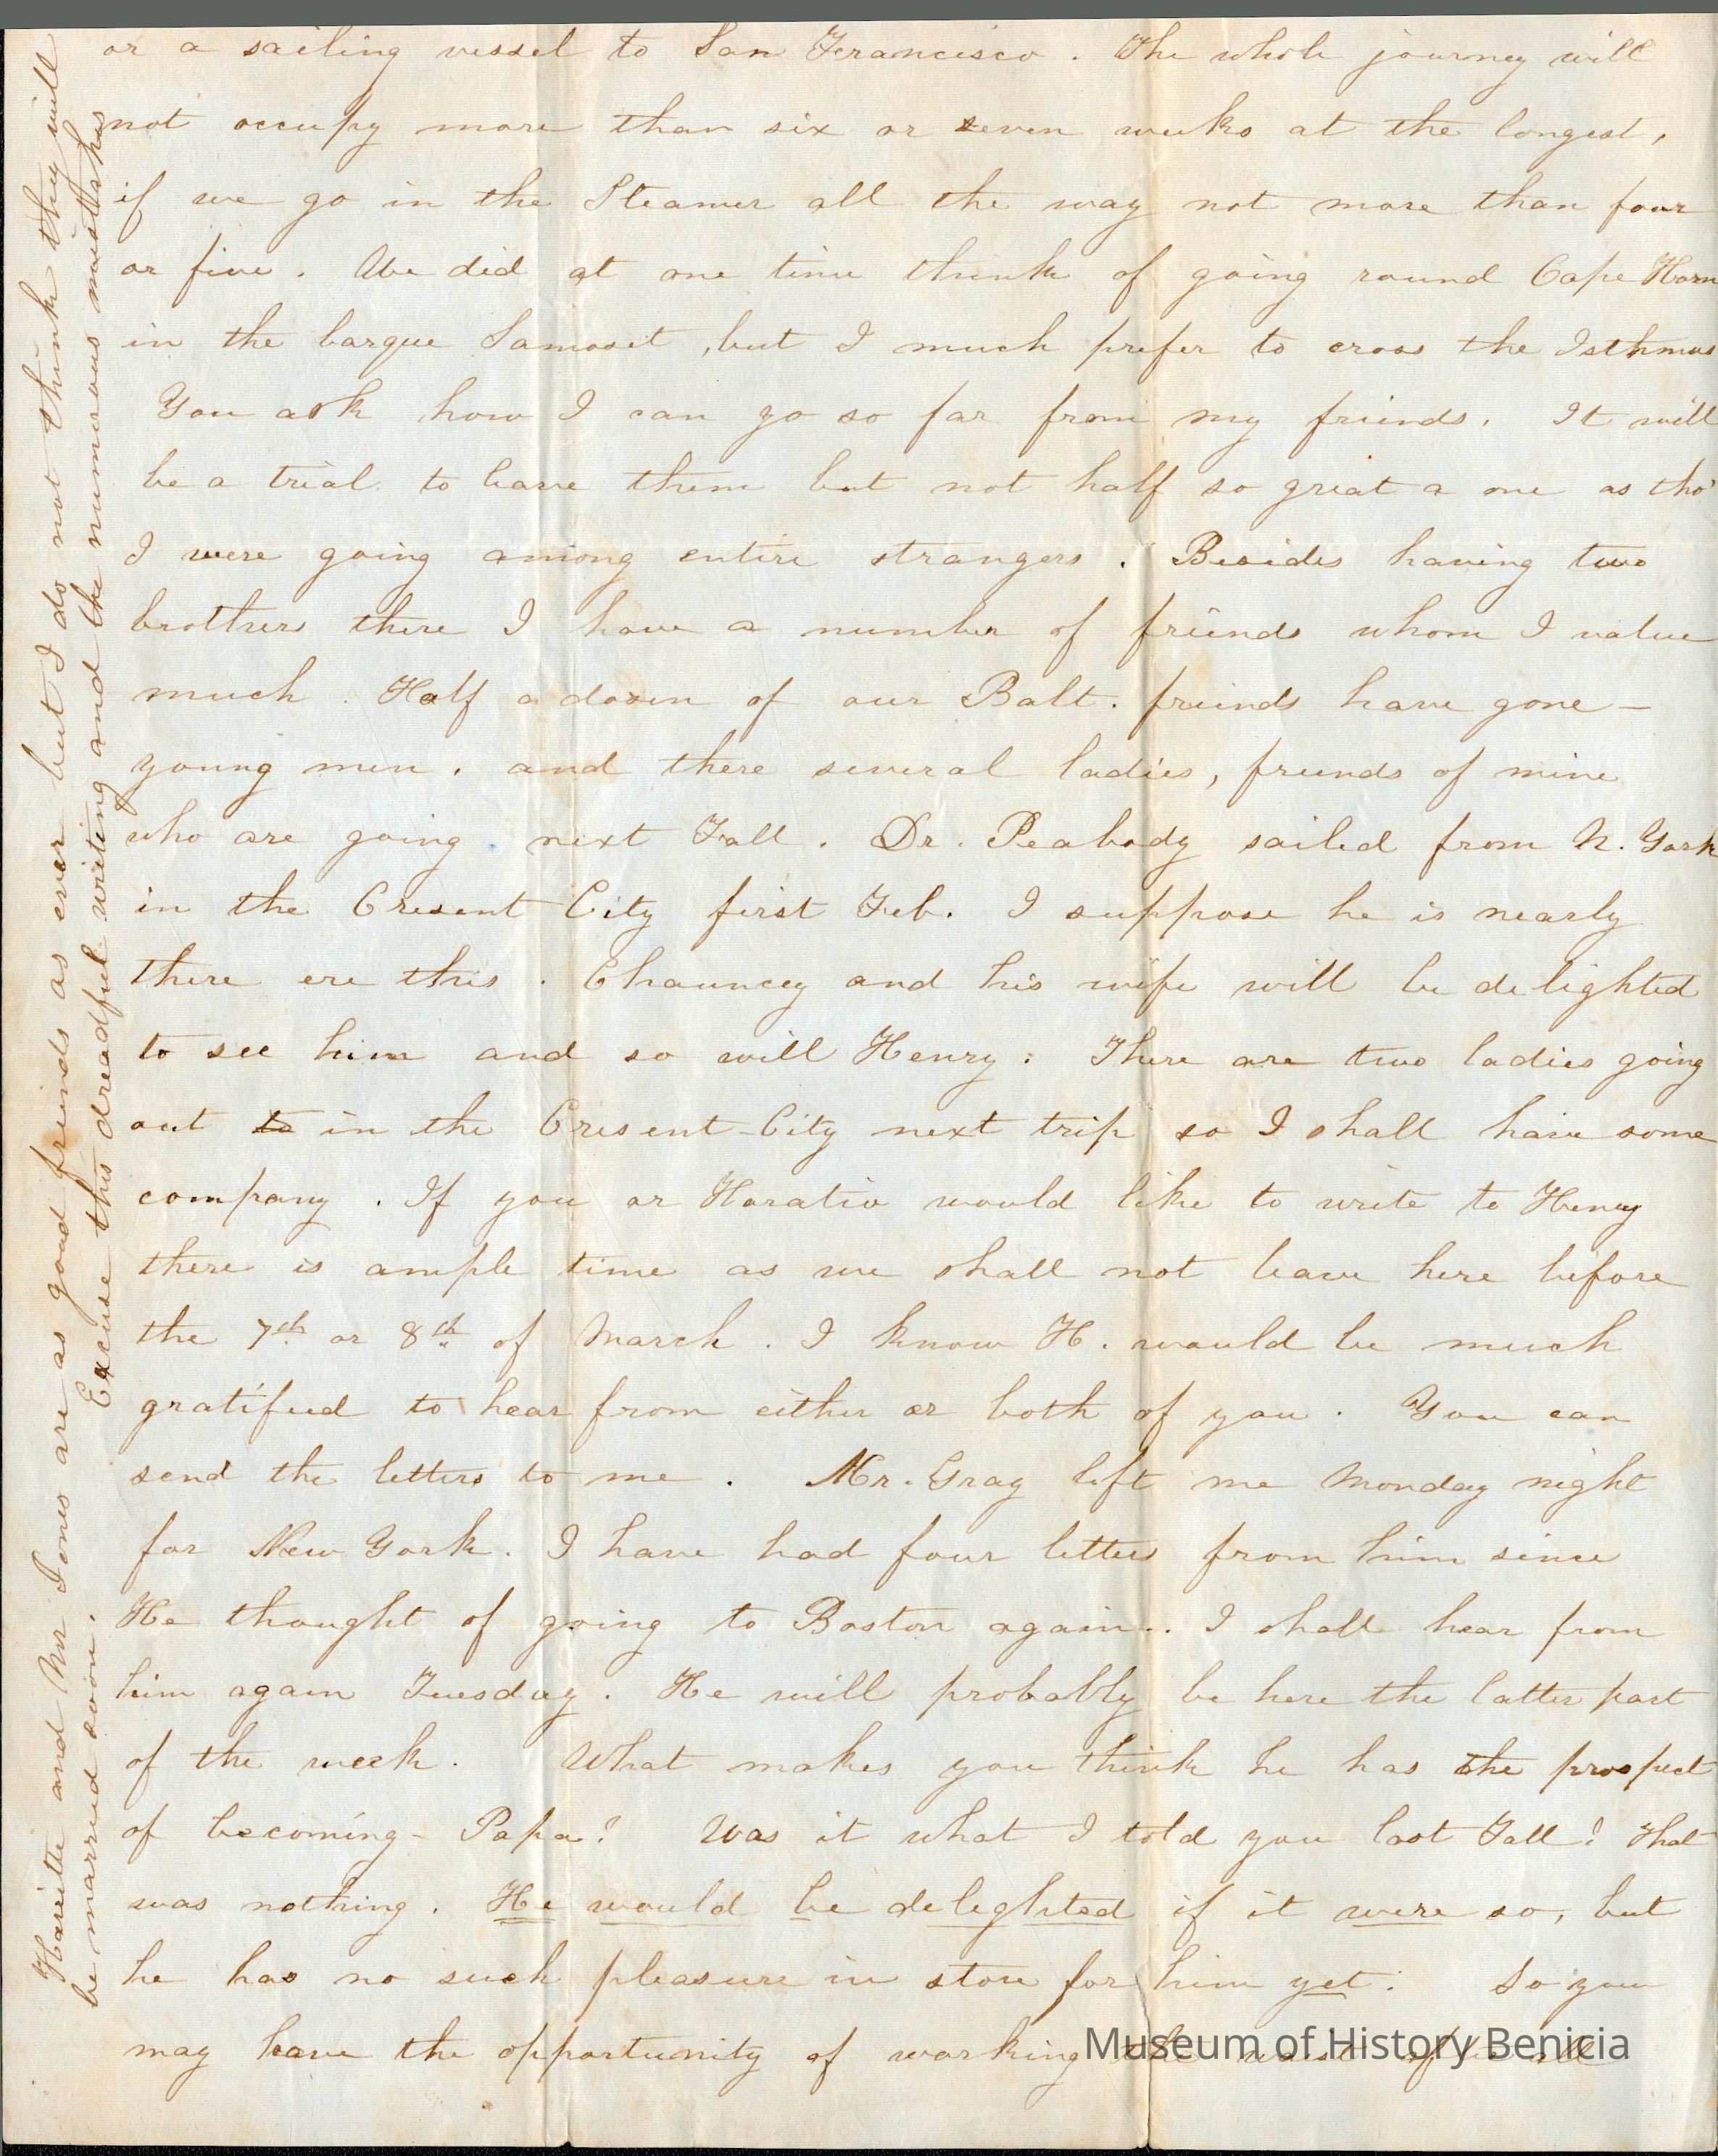 or a sailing vessel to San Francisco. The whole journey will
not occupy more than six or seven weeks at the longest,
if we go in the Steamer all the way not more than four
or five. We did at one time think of going round Cape Horn
in the barque Samoset, but I much prefer to cross the Isthmus
You ask how I can go so far from my friends. It will
be a trial to leave them but not half so great a one as tho'
I were going among entire strangers. Besides having two
brothers there I have a number of friends whom I value
much. Half a dozen of our Balt. friends have gone -
young men. and there several ladies, friends of mine
who are going next Fall. Dr. Peabody sailed from N. York
in the Cresent City first Feb. I suppose he is nearly
there ere this. Chauncey and his wife will be delighted
to see him and so will Henry. There are two ladies going
out to in the Cresent-City next trip so I shall have some
company. If you or Horatio would like to write to Henry
there is ample time as we shall not leave here before
the 7th or 8th of March. I know H. would be much
gratified to hear from either or both of you. You can
send the letters to me. Mr. Gray left me Monday night
for New York. I have had four letters from him since
He thought of going to Boston again.. I shall hear from
him again Tuesday. He will probably be here the latter part
of the week. What makes you think he has the prospect
of becoming - Papa? Was it what I told you last Fall? That
was nothing. He would be delighted if it were so, but
he has no such pleasure in store for him yet. So you
may leave the opportunity of working the waist of it all
Harriette and Mr Jones are as good friends as ever but I do not think they will
be married soon. Excuse this dreadful writing and the numerous mistakes
Museum of History Benicia